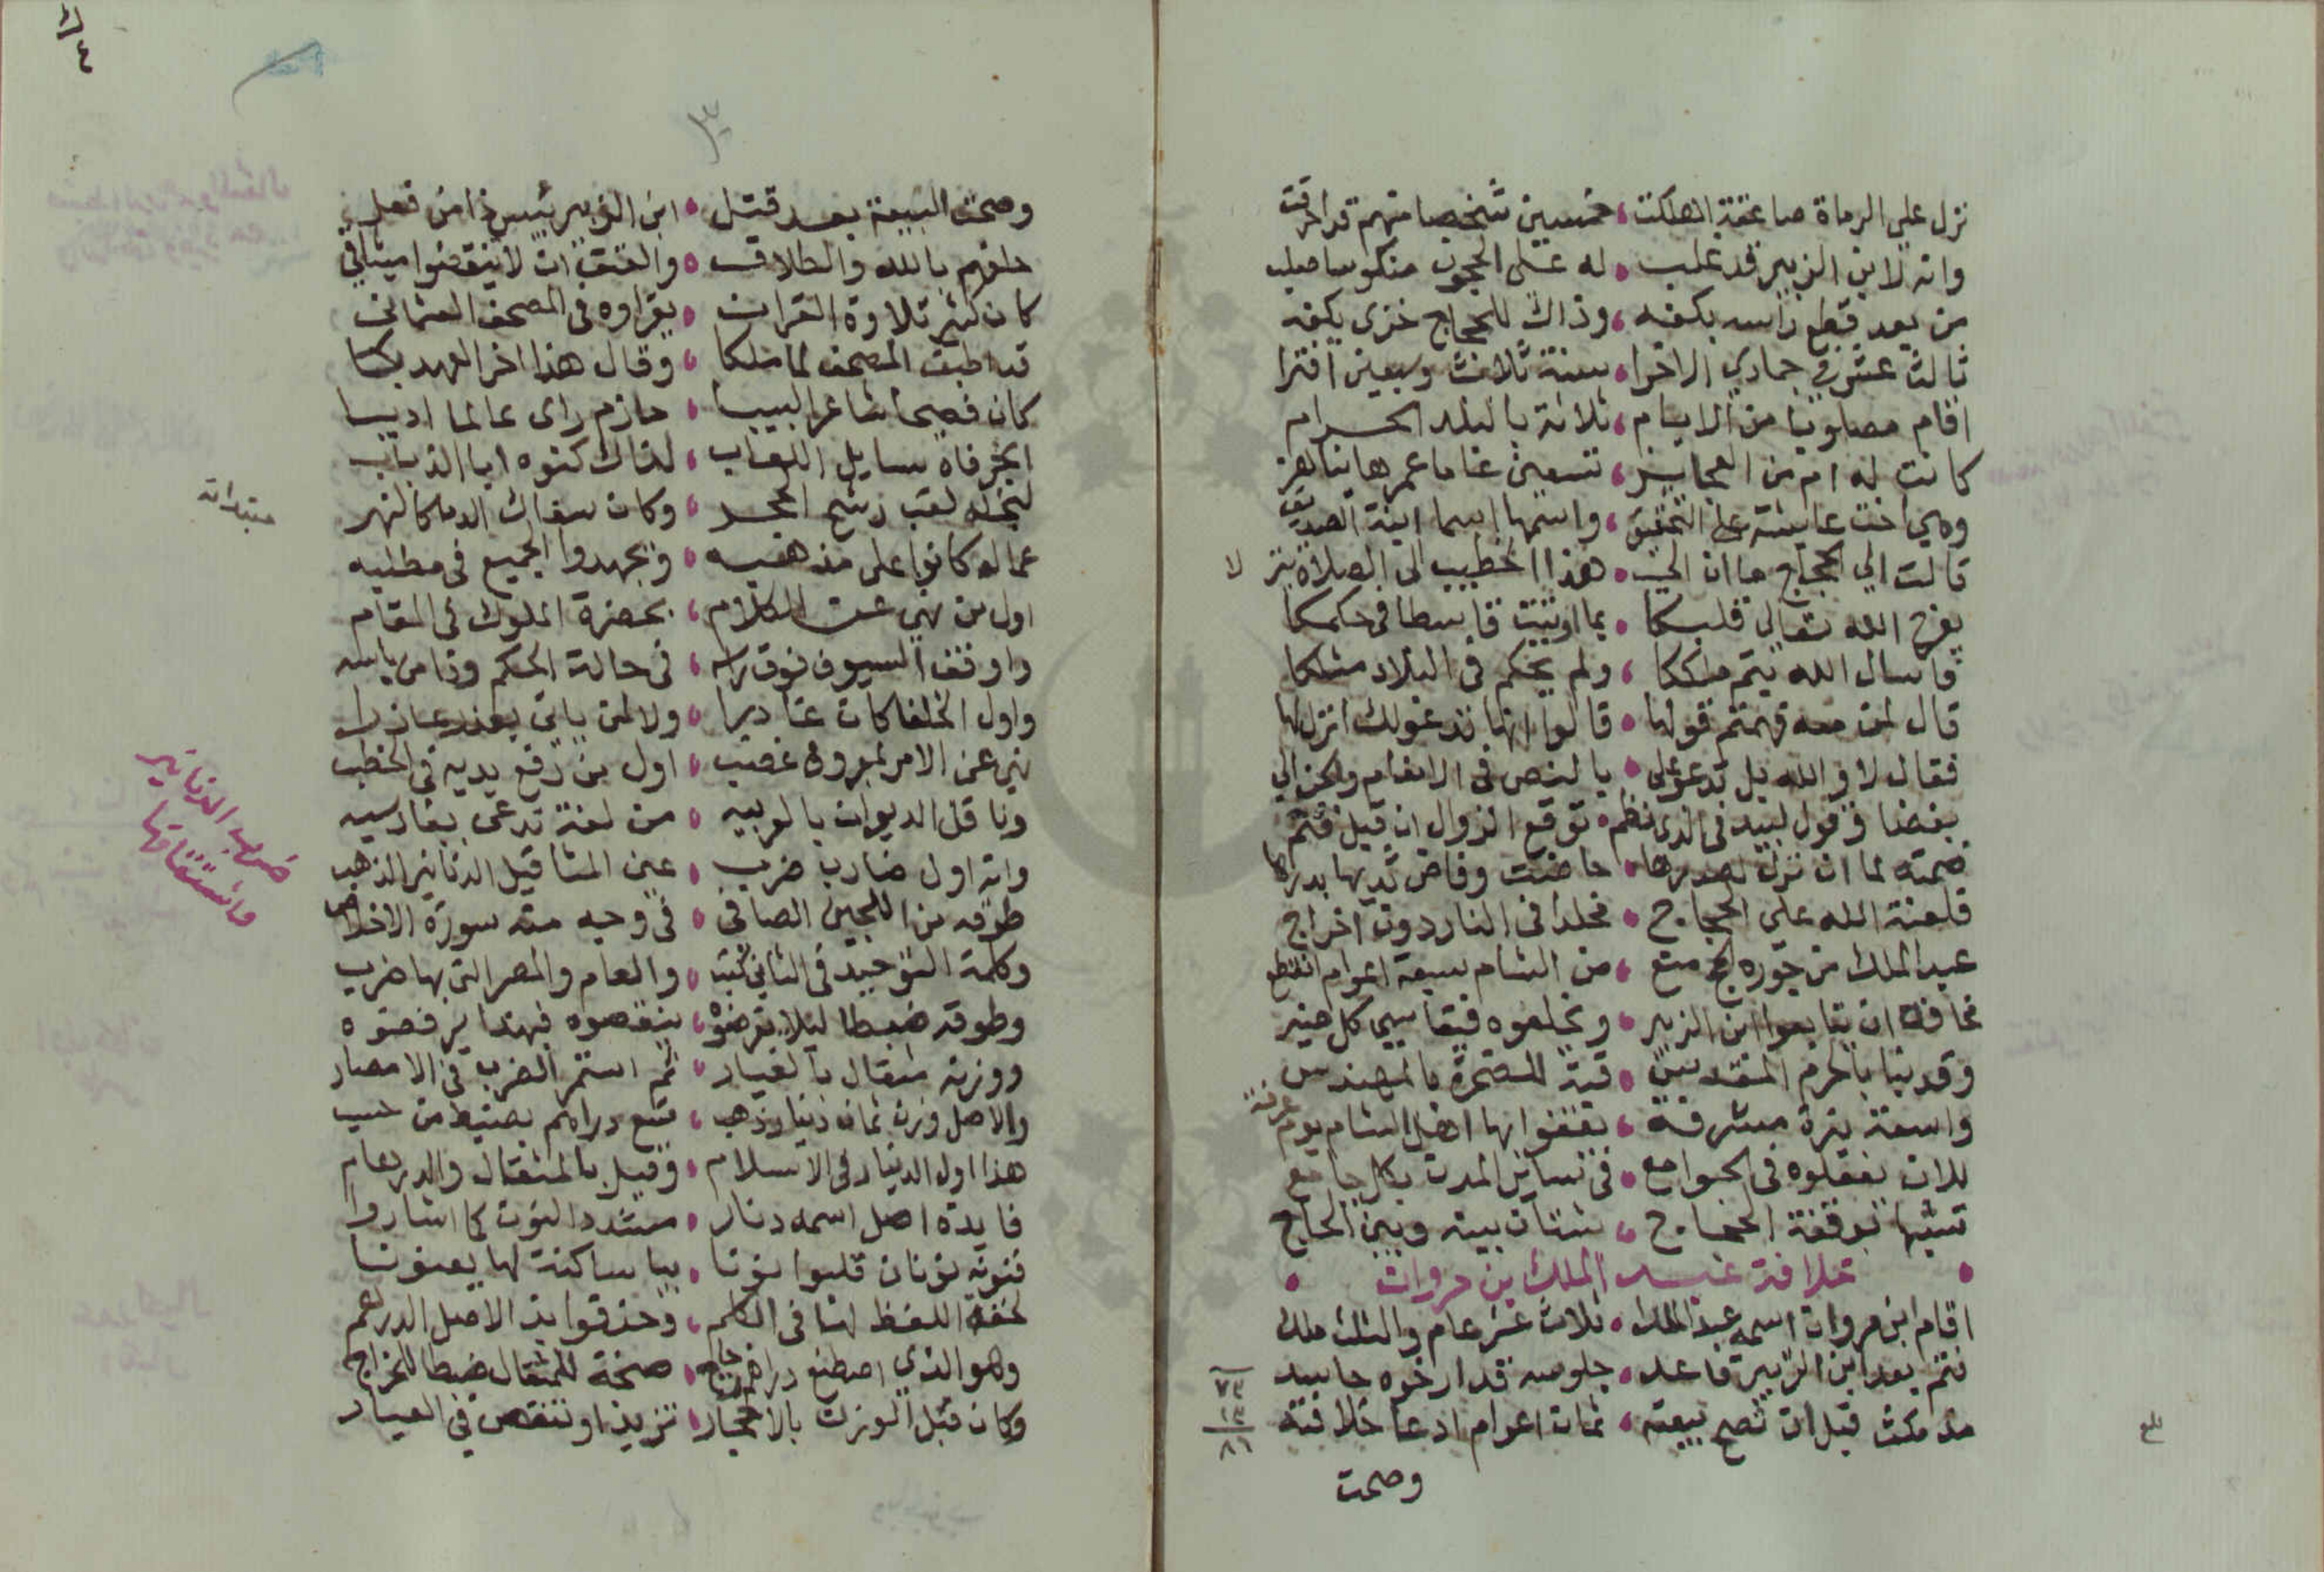 نزل على الرماة صاعقة اهلكت ، خمسين شخصا منهم قد احرقت
وانه لابن الزبير قد غلب ، له على الحجون منكوسا صلب
من بعد قطع راسه بكفه ، وذاك للحجاج خزى يكفه
ثالث عشر في جمادي الاخرا ، سنة ثلاث وسبعين
اقام مصلوبا من الايام ، ثلاثة بالبلد الحرام
كانت له ام من العجايز ، تسعين عاما عمرها يناهز
وهي اخت عايشة على التحقيق ، واسمها اسما ابنة الصديق
قالت الي الحجاج ما ان الي ، هذا الخطيب الى الصلاة
لا
يفرح الله تعالى قلبكا ، بما اوتيت في حكمكا
فاسال الله يتم ملككا ، ولم يحكم في البلاد مثلكا
قال لمن معه فهمتم قولها ، قالوا انها تدعو لك
فقال لا والله بل تدعو على ، بالنص في الانعام
وقول لبيد في الذي نظم ، توقع الزوال ان قيل فتم
ضمته لما ان نزل لصدرها ، حاضت وفاض ثديها بدرها
فلعنة الله على الحجاج ، مخلدا في النار دون اخراج
عبد الملك من جوره الحج منع ، من الشام سبعة اعوام انقطع
مخافة ان يتابعوا ابن الزبير ، ويخلعوه
وقد بنا بالحرم المقدس ، قبة للصخرة بالمهندس
واسعة مشرفة ، يقفوا بها اهل الشام يوم عرفة
للان يفعلوه في الجوامع ، في المدن بكل جامع
تشبها بوقفة الحجاج ، شتان بينه وبين الحاج
خلافة عبد الملك بن مروان
اقام ابن مروان اسمه عبد الملك ، ثلاث عشر عام والثلث ملك
بعد ابن الزبير ، جلوسه قد ارخوه
٧٣
١٣
٨٦
مذ مكث قبل ان تصح بيعته ، ثمان اعوام ادعا خلافته
وصحت
بلغ
وصحت البيعة بعد قتل ، ابن الزبير بئس ذا من فعل
حلفهم بالله والطلاق ، والعتق ان لا ينقضوا ميثاق
كان كثير تلاوة القران ، يقراوه في المصحف العثماني
قد اطبق المصحف لما ملكا ، وقال هذا اخر العهد بكا
كان فصيحا شاعرا لبيبا ، حازم راى عالما اديبا
ابخر فاه سايل اللعاب ، لذاك كنوه ابا الذباب
لبخله لقب رشح الحجر ، وكان سفاك الدما كالنهر
عماله كانوا على مذهبه ، الجميع في مطلبه
اول من نهى عن الكلام ، بحضرة الملوك في المقام
واوقف السيوف فوق راسه ، في حالة الحكم
واول الخلفا كان غادرا ، ولا لمن ياتي بعذر عاذرا
نهى عن الامر لمعروف غصب ، اول من رفع يديه في الخطب
وناقل الديوان بالعربيه ، من لغة تدعى بفارسيه
وانه اول ضارب ضرب ، عين المثاقيل الدنانير الذهب
ضرب الدنانير
واشتقاقها
طوقه من اللجين الصافي ، في وجه منه سورة الاخلاص
وكلمة التوحيد في الثاني كتب ، والعام والمصر التي بها ضرب
وطوقه ضبطا ليلا يقرضوه ، ينقصوه فبهذا يرفضوه
ووزنه مثقال بالعيار ، ثم استمر الضرب في الامصار
والاصل وزن ثمان دينار ذهب ، سبع دراهم بضبط من حسب
هذا اول الدينار في الاسلام ، وقيل بالمثقال والدرهام
فايدة اصل اسمه دنار ، مشدد النون كما اشاروا
فنونه نونان قلبوا نونا ، بيا ساكنة لها يعنونا
لخفة اللفظ لها في الكلم ، وحذفوا الاصل الدرهم
وهو الذي اصطنع دراهم ، صنجة للمثقال ضبطا للخراج
وكان قبل الوزن بالاحجار ، تزيد او تنقص في العيار